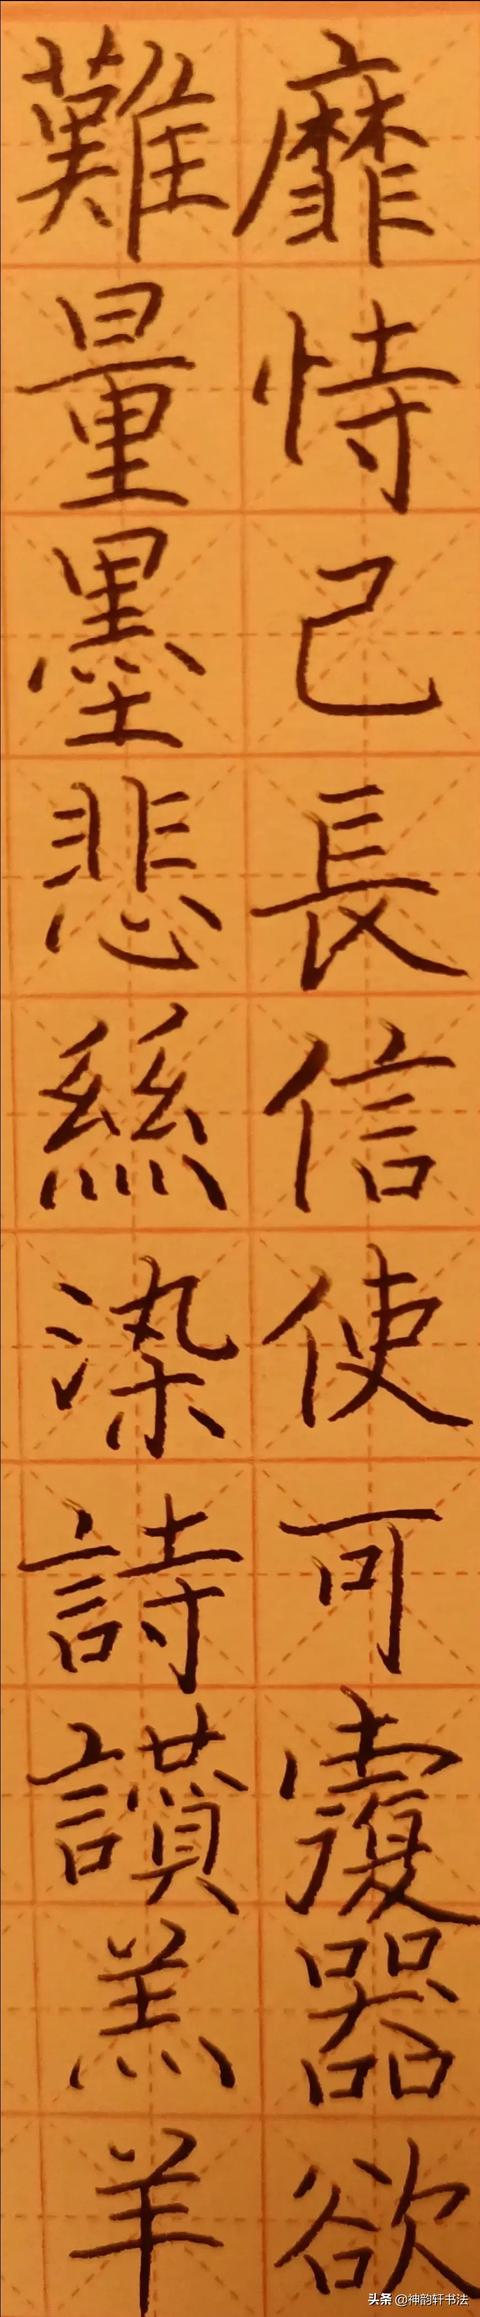 靡恃己長信使可覆器欲
難量墨悲絲染詩讚羔羊
头条 @神韵轩书法